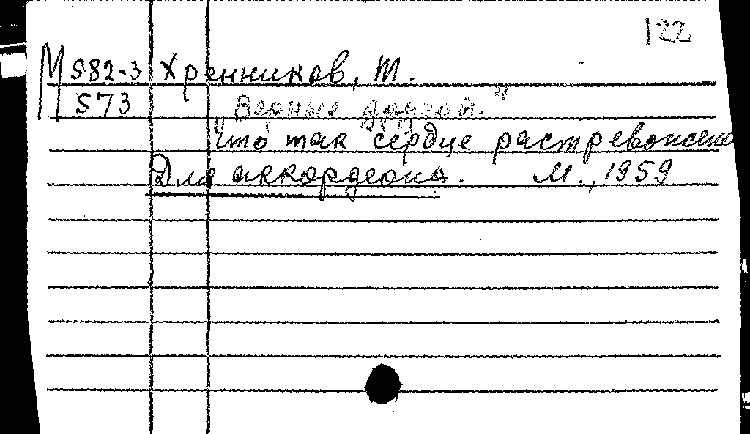 122
М 582-3 Хренников, Т.
573 "Верные друзья."
Что так сердце растревожено
Для аккордеона. М., 1959